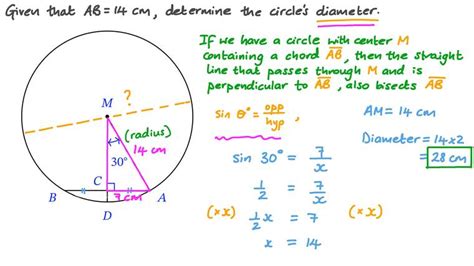 Given that AB = 14 cm, determine the circle's diameter.
If we have a circle with center M
containing a chord AB, then the straight
line that passes through M and is
perpendicular to AB, also bisects AB
?
M
(radius)
14 cm
30°
C
7 cm
B
A
D
sin θ° = opp/hyp ,
sin 30° = 7/x
1/2 = 7/x
(×x) 1/2 x = 7 (×x)
x = 14
AM = 14 cm
Diameter = 14×2
= 28 cm